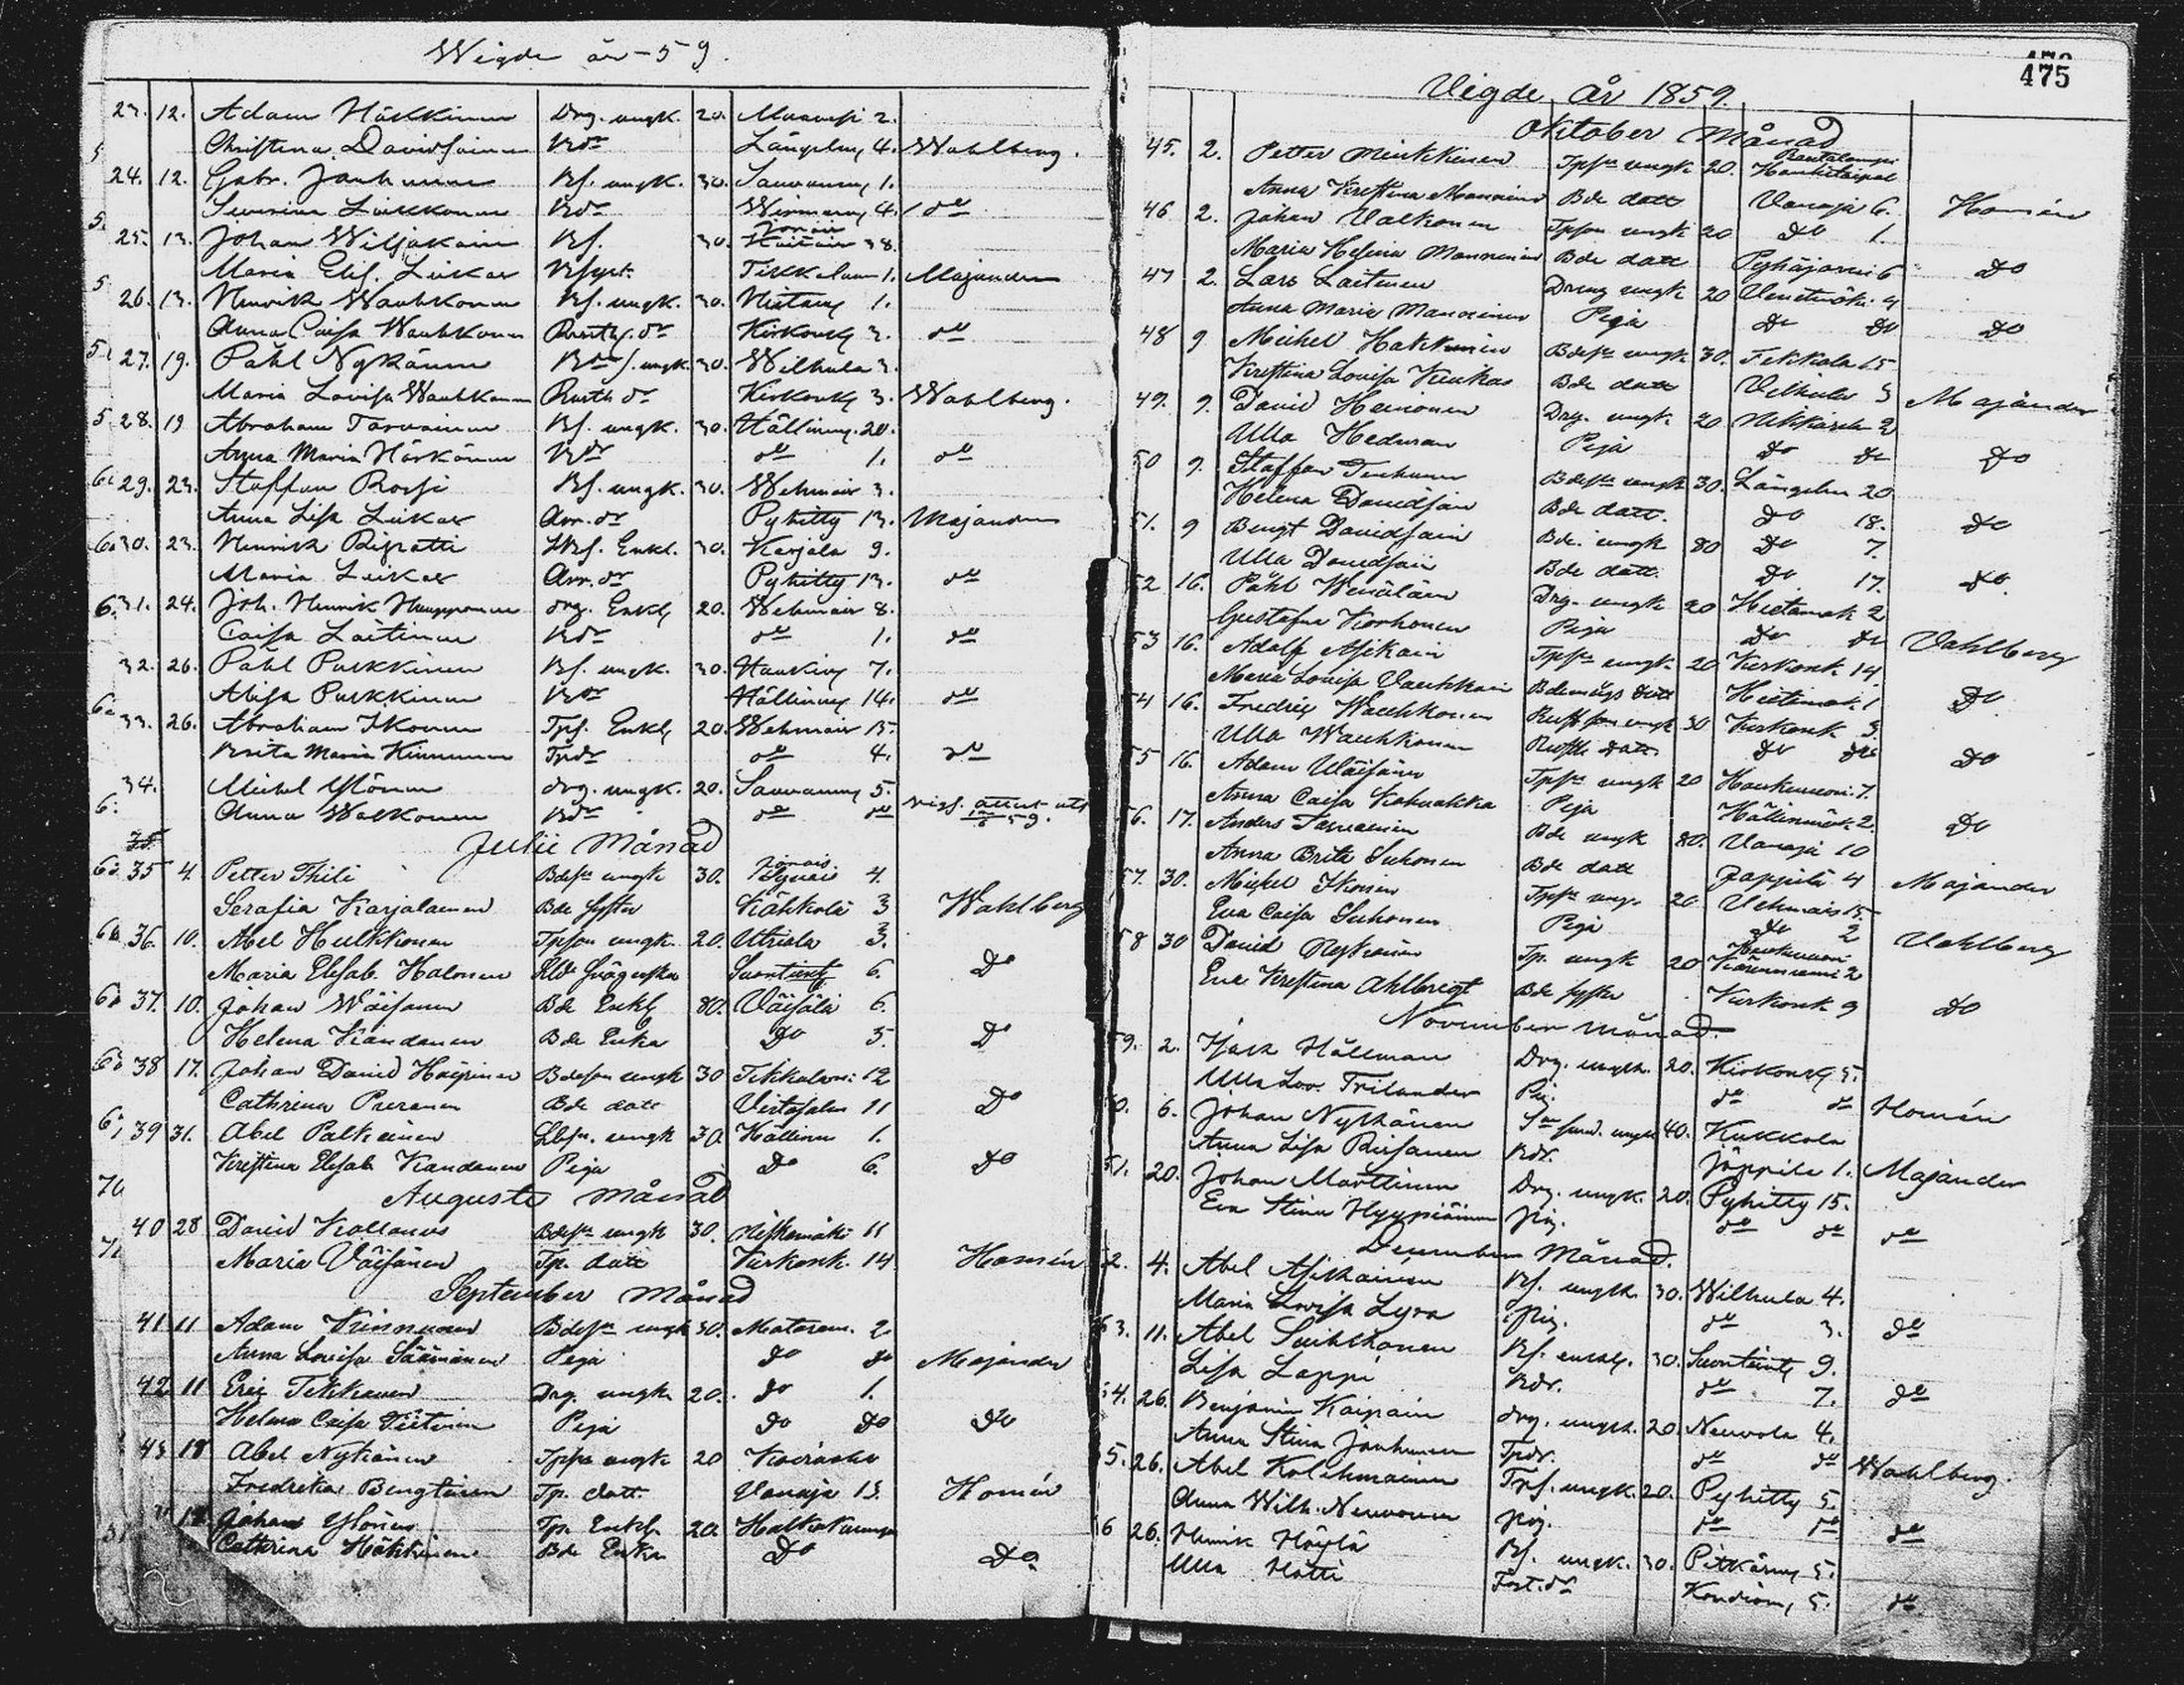 Wigde år -59.
23. 12. Adam Häkkinen Drg. ungk. 20. 2.
Christina Davidsainen Bdr Längelmy 4. Wahlberg.
24. 12. Gabr. Janhunen Bf. ungk. 30. Sauvamy 1.
Severina Liukkonen Bdr 4. do
25. 13. Johan Wiljakain Bf. 30. 38.
Maria Elis. Liukar Tikk 1. Majander
26. 13. Henrik Wauhkonen Bf. ungk. 30. Nietamy 1.
Anna Caisa Wauhkonen Rusth. dr Kirkonky 3. do
27. 19. Påhl Nykänen ungk. 30. Wilhula 3.
Maria Lovisa Wauhkonen Rusth dr Kirkonky 3. Wahlberg.
28. 19 Abraham Tarvainen Bf. ungk. 30. Hällinmy 20.
Anna Maria Härkönen Bdr do 1. do
29. 23. Staffan Rossi Bf. ungk. 30. Wehmais 3.
Anna Lisa Liukar Arr. dr Pyhitty 13. Majander
30. 23. Henrik Ripatti Enkl. 30. Karjala 9.
Maria Liukar Arr. dr Pyhitty 13. do
31. 24. Joh. Henrik drg. Enkl 20. Wehmais 8.
Caisa Laitinen Bdr do 1. do
32. 26. Påhl Purkkinen Bf. ungk. 30. Hauking 7.
Alisa Purkkinen Bdr Hällinmy 14. do
33. 26. Abraham Ikonen Tpf. Enkl 20. Wehmais 15.
Brita Maria Kinnunen Tpdr do 4. do
34. Michel Ylönen drg. ungk. 20. Sauvamy 5.
Anna Walkonen Bdr do do
Julii Månad
35 4. Petter Thili Bdesn ungk 30. 4.
Serafia Karjalainen Bde syster Kähkölä 3 Wahlberg
36. 10. Abel Hulkkonen Tpson ungk. 20. Utriala 3.
Maria Elisab. Halonen Suontienk 6. Do
37. 10. Johan Wäisänen Bde Enkl 80. Väisälä 6.
Helena Kiandanen Bde Enka Do 5. Do
38 17. Johan David Häyrinen Bdeson ungk 30 Tikkalam: 12
Cathrina Puranen Bde dott Virtasalm 11 Do
39 31. Abel Palkeinen ungk 30. Hällinm 1.
Kristina Elisab Kandanen Piga Do 6. Do
Augusti Månad
40 28 David Kollanus Bdesn ungk 30. Niskamäki 11
Maria Väisänen Tp. dott Kirkonk. 14 Homén
September Månad
41 11 Adam Kinnunen Bdesn ungk 30. Mataram. 2
Anna Lovisa Säämänen Piga do do Majander
42 11 Eric Tikkanen Drg ungk 20. do 1.
Helena Caisa Tiitinen Piga do do do
43 18 Abel Nykänen Tpsn ungk 20
Fredrika Bengtsson Tp. dott. Vanaja 13. Homén
18 Johan Ylönen Tp. Enkl. 20.
Cathrina Häkkinen Bde Enka Do Do
475
Vigde år 1859.
Oktober Månad
45. 2. Petter Minkkinen Tpsn ungk 20. Rautalampi Hankataipal
Anna Kristina Manninen Bde dott Vanaja 6. Homén
46 2. Johan Valkonen Tpson ungk 20 do 1.
Maria Helena Manninen Bde dott Pyhäjärvi 6 Do
47 2. Lars Laitinen Dreng ungk 20 Venetmäk. 4
Anna Maria Manninen Piga Do Do Do
48 9 Michel Hakkinen Bdesn ungk 30. Tikkala 15
Kristina Lovisa Kiukas Bde dott Vilhula 3 Majander
49. 9. David Heinonen Drg. ungk. 20 2
Ulla Hedman Piga Do Do Do
50 9. Staffan Tenhunen Bdesn ungk 30. Längelm 20
Helena Davidsain Bde dott. Do 18. Do
51. 9 Bengt Davidsain Bde. ungk 80 Do 7.
Ulla Davidsain Bde dott. Do 17. Do
52 16. Påhl Venäläin Drg. ungk 20 Hietamäk 2
Gustafva Korhonen Piga Do Do Vahlberg
53 16. Adolf Asikain Tpsn ungk. 20 Kirkonk. 14.
Maria Lovisa Vauhkain Hietimäk. 1 Do
54 16. Fredrig Wauhkonen ungk 30 Kirkonk 3.
Ulla Wauhkonen Rusth. dott. Do Do Do
55 16. Adam Väisänen Tpsn ungk 20 Haukimemi. 7.
Anna Caisa Kohvakka Piga Hällinmäk 2. Do
56. 17. Anders Tarvainen Bde ungk 80. Vanaja 10
Anna Brita Suhonen Bde dott Jäppilä 4 Majander
57. 30. Michel Ikonen Tpsn ung. 20. Vehmais 15.
Eva Caisa Suhonen Piga Do 2 Vahlberg
58 30 David Nykänen Tp. ungk 20 2
Eva Kristina Ahlbregt Bde syster Kirkonk 9 Do
November månad.
59. 2. Isack Hällman Drg. ungk. 20. Kirkonky 5.
Ulla Lov. Frilander Pig. do do Homén
60. 6. Johan Nykänen ungk 40. Kukkola
Anna Lisa Riisanen Bdr. Jäppilä 1. Majander
61. 20. Johan Marttinen Drg. ungk. 20. Pyhitty 15.
Eva Stina Hyypiäinen pig. do do do
December Månad.
62. 4. Abel Asikainen Bf. ungk. 30. Wilhula 4.
Maria Lovisa Lyra pig. do 3. do
63. 11. Abel Suihkonen Bf. enkl. 30. Suontienk 9.
Lisa Lappi Bdr. do 7. do
64. 26. Benjamin Kaipain drg. ungk. 20. Neuvola 4.
Anna Stina Janhunen Tpdr. do do Wahlberg.
5. 26. Abel Kolehmainen Tpf. ungk. 20. Pyhitty 5.
Anna Wilh. Neuvonen pig. do do do
6 26. Henrik Höylä Bf. ungk. 30. Pitkäimy 5.
Ulla Hotti 5. do